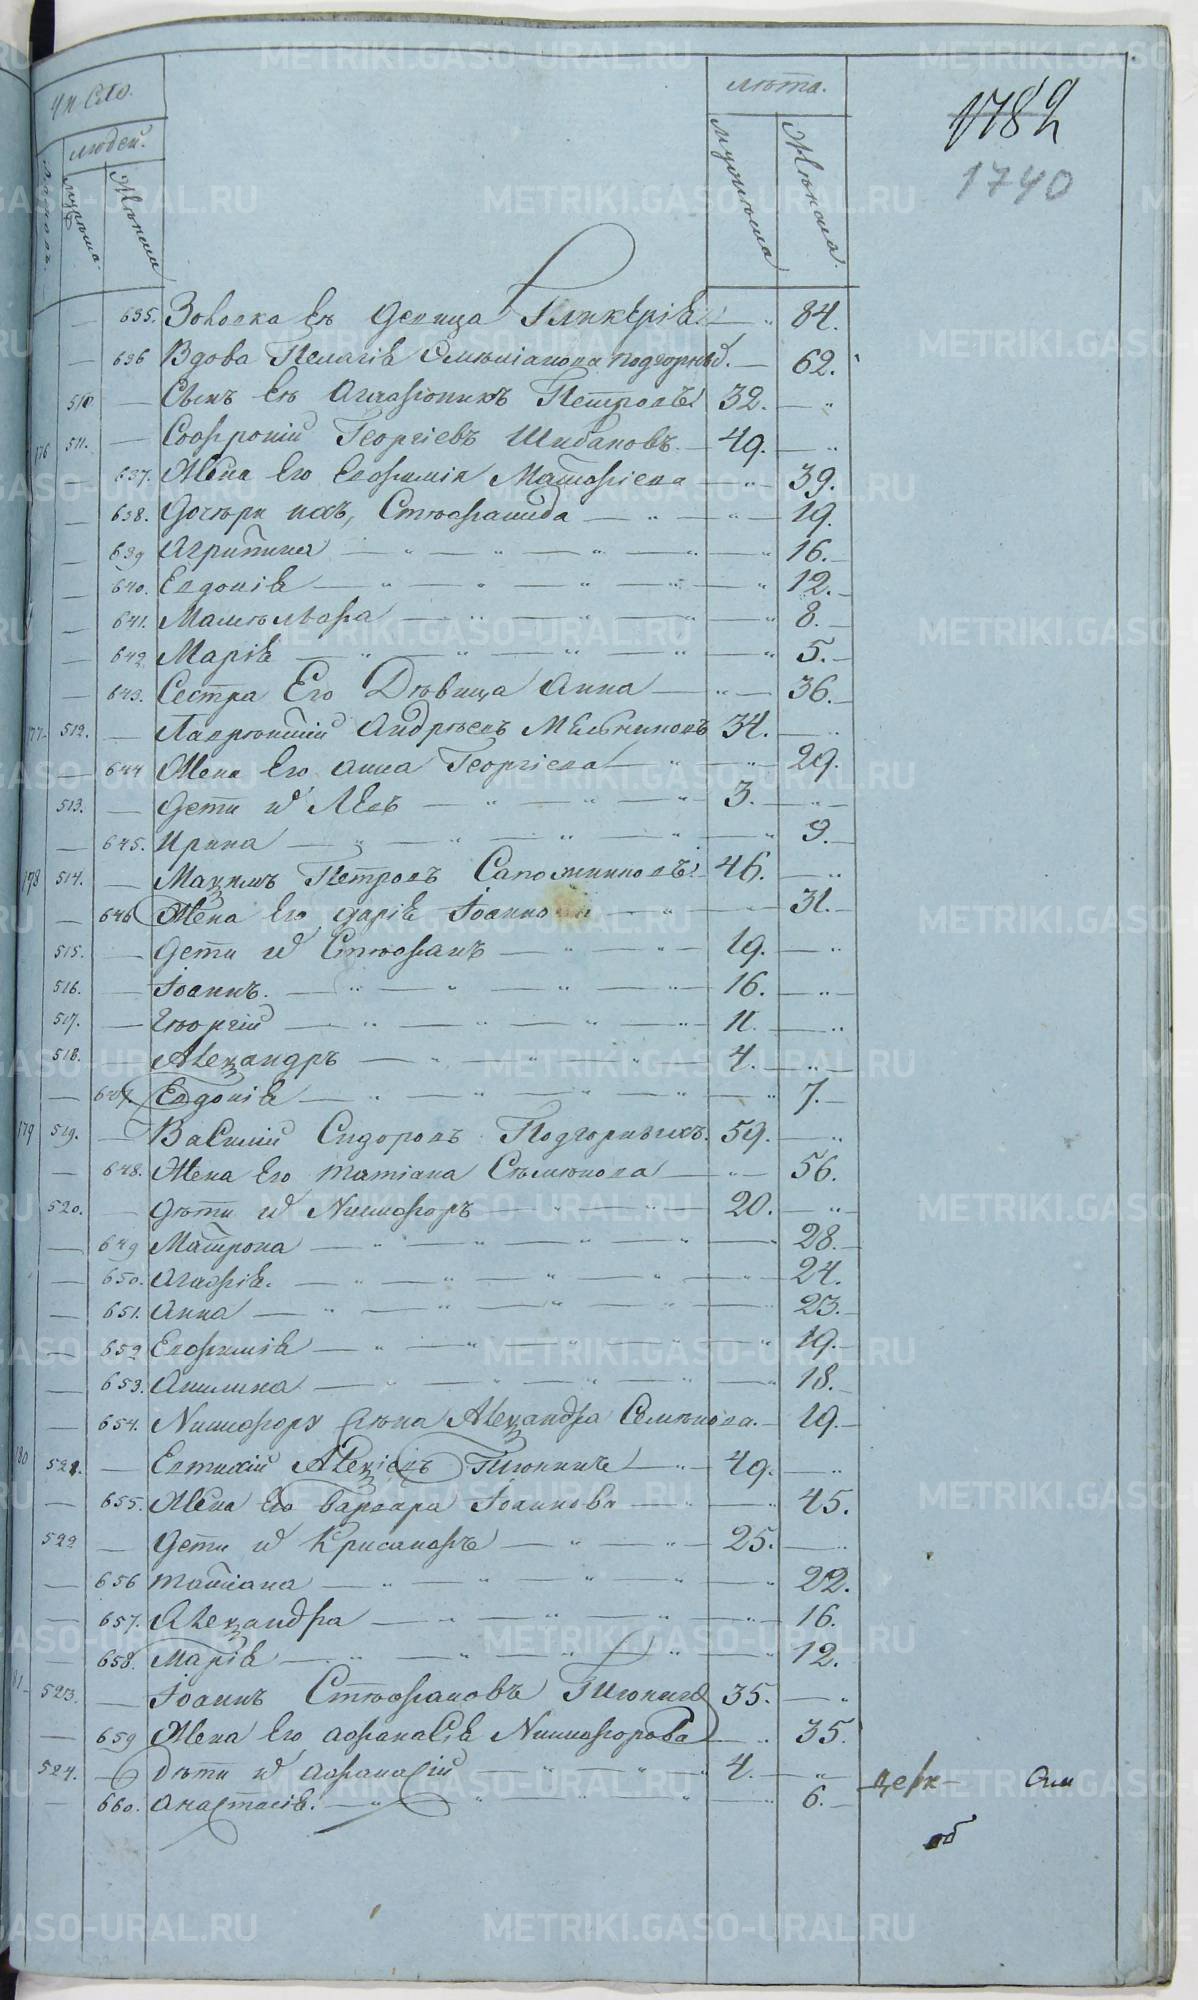 Число. лѣта. 1782
людей. 1740
мужеска. женска. мужеска женска.
635. Золовка Ея Девица Гликерія. 84.
636 Вдова Пелагія Емельянова Подгорныхъ. 62.
510. Сынъ Ея Агафоникъ Петровъ. 32.
176 511. Софроній Георгіевъ Шибановъ. 49.
637. Жена Его Евфимія Матфіева 39.
638. Дочери ихъ, Стефанида 19.
639 Агрипина 16.
640. Евдокія 12.
641. Мамельфа 8.
642. Марія 5.
643. Сестра Его Дѣвица Анна 36.
177 512. Лаврентій Андреевъ Мельниковъ 34.
644 Жена Его Анна Георгіева 29.
513. Дети ихъ Левъ 3.
645. Ирина 9.
178 514. Маѯимъ Петровъ Сапожниковъ. 46.
646 Жена Его Дарія Іоаннова 31.
515. Дети ихъ Стефанъ 19.
516. Іоаннъ. 16.
517. Георгій 11.
518. Алеѯандръ 4.
647. Евдокія 7.
179 519. Василій Сидоровъ Подгорныхъ. 59.
648. Жена Его Татіана Семенова 56.
520. Дѣти ихъ Никифоръ 20.
649 Матрона 28.
650. Агафія. 24.
651. Анна 23.
652 Евфимія 19.
653. Акилина 18.
654. Никифора Жена Алеѯандра Семенова. 19.
180 521. Евтихій Алеѯіевъ Тюнинъ 49.
655. Жена Его Варвара Іоаннова 45.
522 Дети ихъ Крисанфъ 25.
656 Татіана 22.
657. Алеѯандра 16.
658. Марія 12.
81 523. Іоаннъ Стефановъ Тюнинъ 35.
659 Жена Его Афанасія Никифорова 35.
524. Дѣти ихъ Афанасій 4.
660. Анастасія. 6. церк
об
METRIKI.GASO-URAL.RU